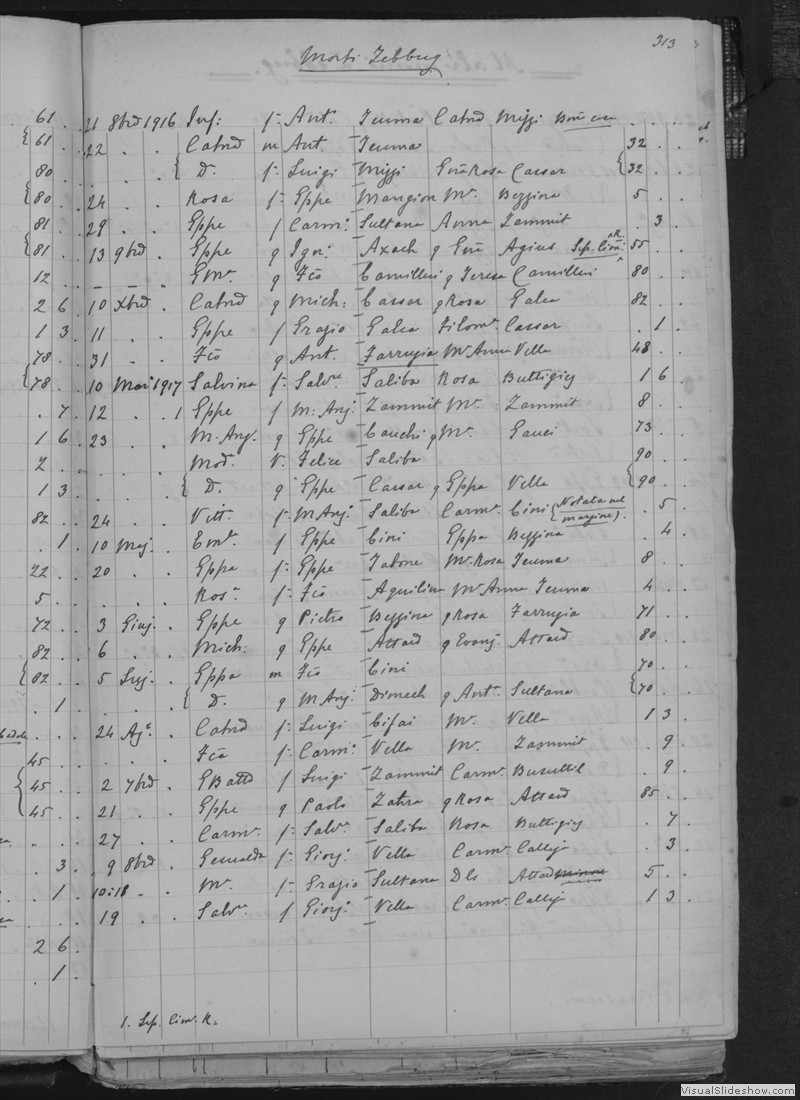 313
Morti Zebbug
61 . . 21 8brd 1916 Inf: f: Ant. Teuma Catnd Mizzi . . .
{61 . . 22 . . Catnd m Ant. Teuma 32 . .
80 . . . . . { D. f: Luigi Mizzi Cassar {32 . .
{80 . . 24 . . Rosa f: Gppe Mangion Mª Bezzina 5 . .
81 . . 29 . . Gppe f Carm: Sultana Anna Zammit . 3 .
{81 . . 13 9brd . Gppe q Ign: Axach q Agius Sep. Cim: R. 55 . .
12 . . _ _ . q Fco Camilleri q Teresa Camilleri 80 . .
2 6 . 10 Xbrd . Catnd q Mich: Cassar q Rosa Galea 82 . .
1 3 . 11 . . Gppe f Grazio Galea Filomª Cassar . 1 .
78 . . 31 . . Fco q Ant. Farrugia Mª Anna Vella 48 . .
{78 . . 10 Mar: 1917 Salvina f: Salvre Saliba Rosa Buttigieg 1 6 .
. 7 . 12 . . 1 Gppe f M. Anj: Zammit Mª Zammit 8 . .
1 6 . 23 . . M. Anj. q Gppe Cauchi q Mª Gauci 73 . .
2 . . . . . Mod. V. Felice Saliba 90 . .
1 3 . . . . { D. q Gppe Cassar q Gppa Vella {90 . .
82 . . 24 . . Vitt. f: M Anj: Saliba Carmª Cini {Notata nel margine). . 5 .
. 1 . 10 Maj. . f Gppe Cini Gppa Bezzina . 4 .
22 . . 20 . . Gppa f: Gppe Tabone Mª Rosa Teuma 8 . .
5 . . . . . Rosª f: Fco Aquilina Mª Anna Teuma 4 . .
72 . . 3 Giuj. . Gppe q Pietro Bezzina q Rosa Farrugia 71 . .
82 . . 6 . . Mich: q Gppe Attard q Evanj: Attard 80 . .
{82 . . 5 Luj. . Gppa m Fco Cini 70 . .
. 1 . . . . { D. q M Anj: Dimech q Antª Sultana {70 . .
24 Ajº . Catnd f: Luigi Cifai Mª Vella 1 3 .
45 . . . . . Fca f: Carm: Vella Mª Zammit . 9 .
{45 . . 2 7brd . GBattd f Luigi Zammit Carmª Busuttil . 9 .
45 . . 21 . . Gppe q Paolo Zahra q Rosa Attard 85 . .
27 . . Carmª f: Salvre Saliba Rosa Buttigieg . 7 .
. 3 . 9 8brd . f: Giorj: Vella Carmª Calleja . 3 .
. 1 . 10:18 . . Mª f: Grazio Sultana Dls Attard 5 . .
19 . . Salvre f Giorj: Vella Carmª Calleja 1 3 .
2 6 .
. 1 .
1. Sep. Cim. R.
VisualSlideshow.com